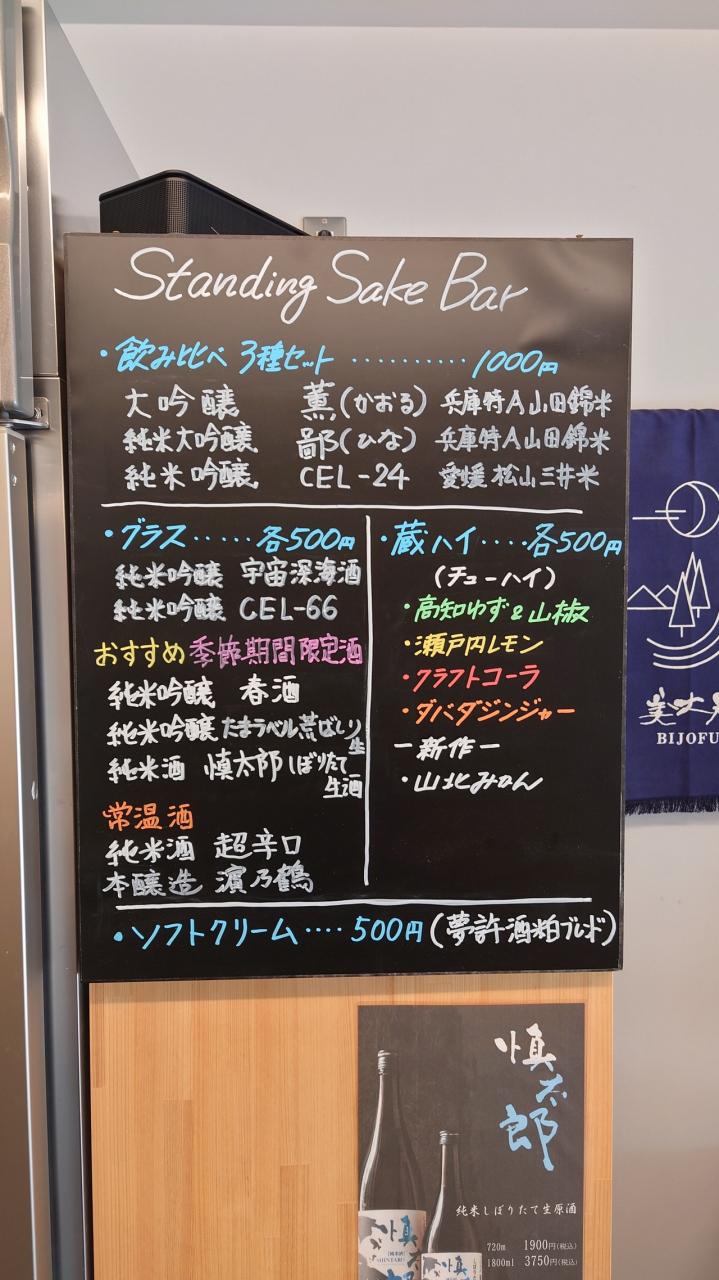 Standing Sake Bar
・飲み比べ 3種セット ・・・・・・・・・・ 1000円
大吟醸 薫(かおる) 兵庫特A山田錦米
純米大吟醸 鄙(ひな) 兵庫特A山田錦米
純米吟醸 CEL-24 愛媛松山三井米
・グラス ・・・・・ 各500円
純米吟醸 宇宙深海酒
純米吟醸 CEL-66
おすすめ 季節期間限定酒
純米吟醸 春酒
純米吟醸 たまラベル荒ばしり
生
純米酒 慎太郎 しぼりたて
生酒
常温酒
純米酒 超辛口
本醸造 濱乃鶴
・蔵ハイ ・・・・ 各500円
(チューハイ)
・高知ゆず&山椒
・瀬戸内レモン
・クラフトコーラ
・ダバダジンジャー
ー新作ー
・山北みかん
・ソフトクリーム ・・・・ 500円 (夢許酒粕ブレンド)
美丈
BIJOFU
慎太郎
純米しぼりたて生原酒
720m 1900円(税込)
1800ml 3750円(税込)
慎太郎
慎